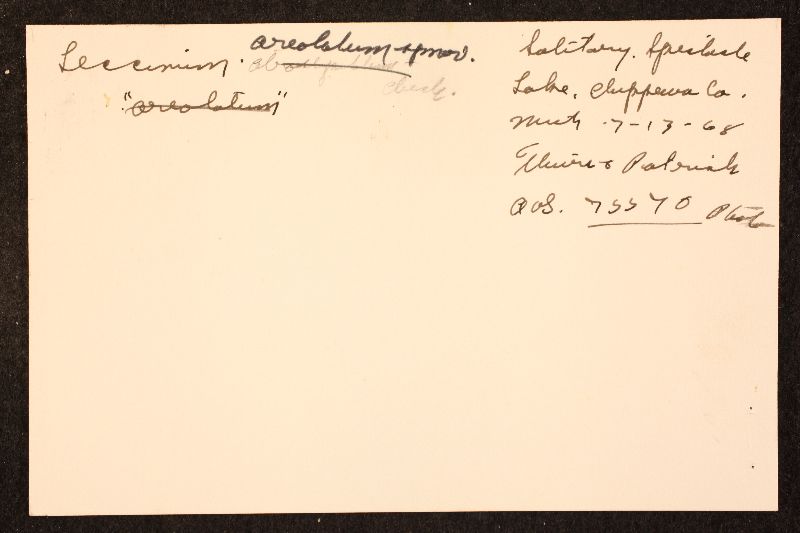 Leccinum areolatum sp nov.
check.
"areolatum"
Solitary.
Lake, Chippewa Co.
Mich 7-13-68
Thiers & Patrick
AHS. 75570 Photo